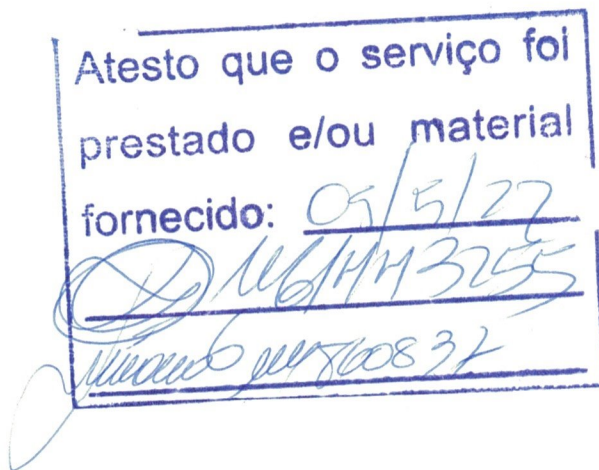 Atesto que o serviço foi
prestado e/ou material
fornecido: 05/5/22
3255
860832